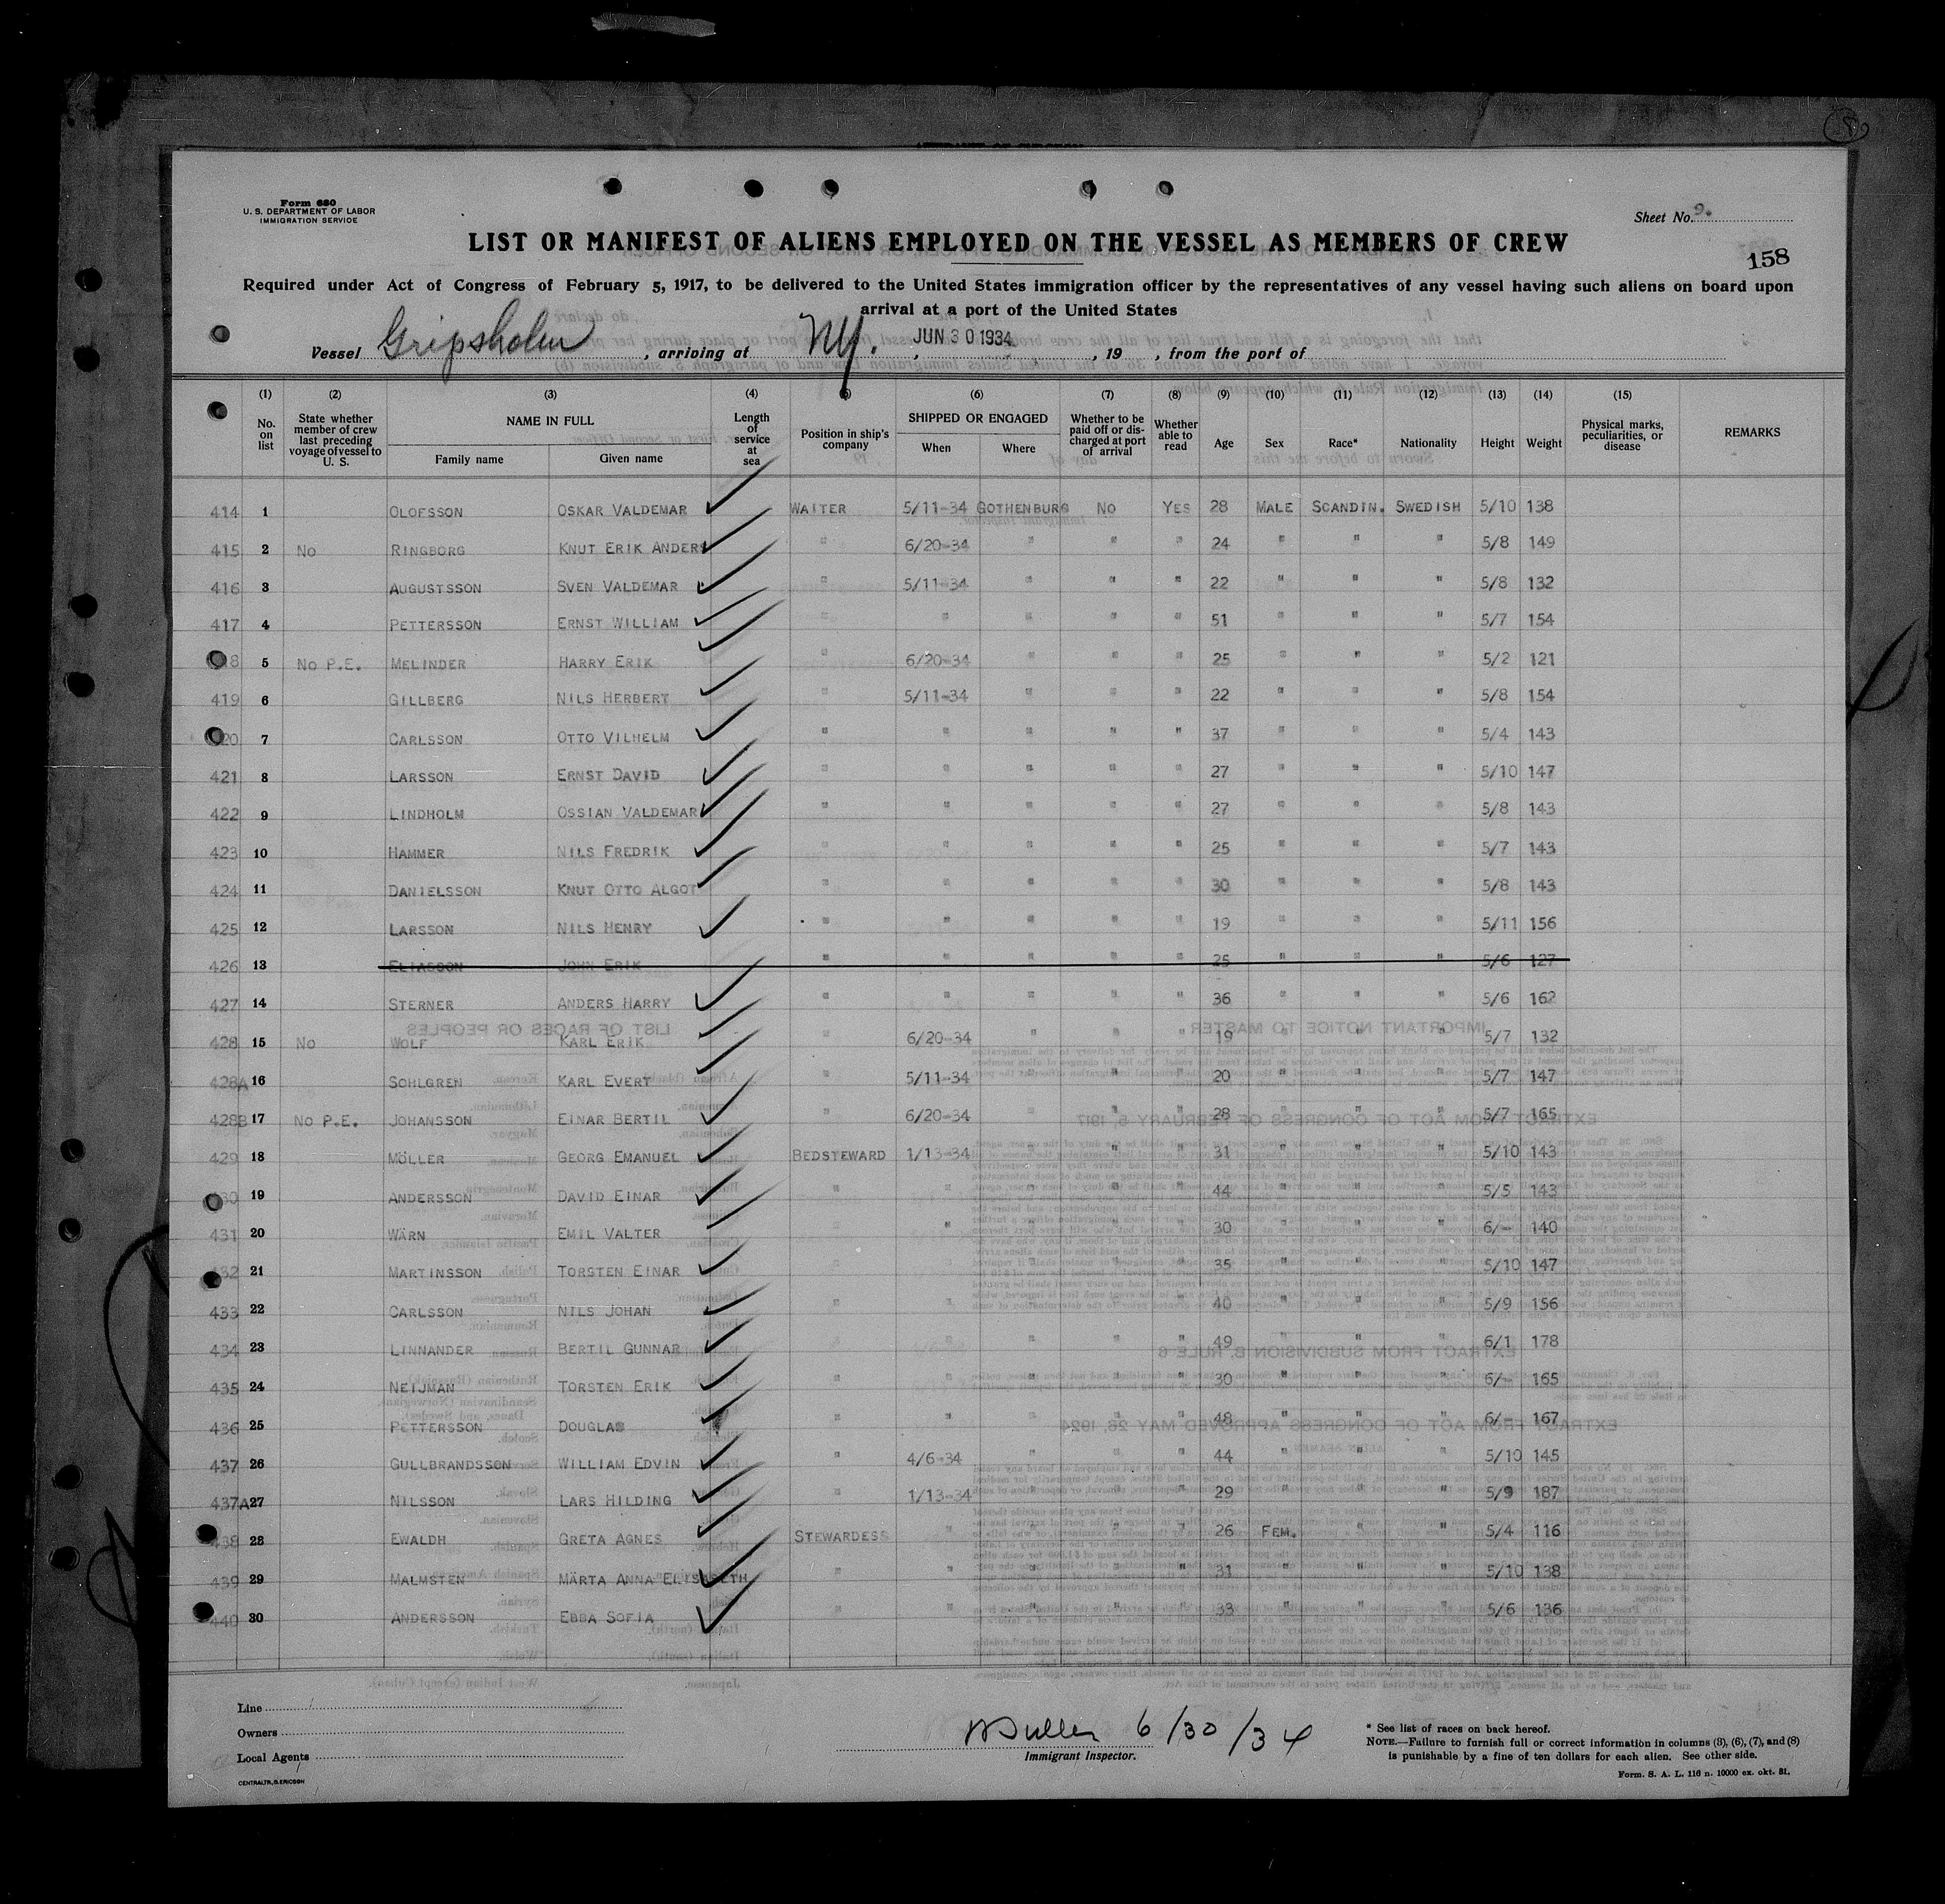 Form 680
U. S. DEPARTMENT OF LABOR
IMMIGRATION SERVICE
Sheet No. 9.
LIST OR MANIFEST OF ALIENS EMPLOYED ON THE VESSEL AS MEMBERS OF CREW
158
Required under Act of Congress of February 5, 1917, to be delivered to the United States immigration officer by the representatives of any vessel having such aliens on board upon
arrival at a port of the United States
Vessel Gripsholm, arriving at NY., JUN 30 1934, 19 , from the port of
(1) No. on list (2) State whether member of crew last preceding voyage of vessel to U. S. (3) NAME IN FULL Family name Given name (4) Length of service at sea (5) Position in ship's company (6) SHIPPED OR ENGAGED When Where (7) Whether to be paid off or discharged at port of arrival (8) Whether able to read (9) Age (10) Sex (11) Race* (12) Nationality (13) Height (14) Weight (15) Physical marks, peculiarities, or disease REMARKS
414 1 OLOFSSON OSKAR VALDEMAR WAITER 5/11-34 GOTHENBURG NO YES 28 MALE SCANDIN. SWEDISH 5/10 138
415 2 NO RINGBORG KNUT ERIK ANDERS " 6/20-34 " " " 24 " " " 5/8 149
416 3 AUGUSTSSON SVEN VALDEMAR " 5/11-34 " " " 22 " " " 5/8 132
417 4 PETTERSSON ERNST WILLIAM " " " " " 51 " " " 5/7 154
8 5 NO P.E. MELINDER HARRY ERIK " 6/20-34 " " " 25 " " " 5/2 121
419 6 GILLBERG NILS HERBERT " 5/11-34 " " " 22 " " " 5/8 154
20 7 CARLSSON OTTO VILHELM " " " " " 37 " " " 5/4 143
421 8 LARSSON ERNST DAVID " " " " " 27 " " " 5/10 147
422 9 LINDHOLM OSSIAN VALDEMAR " " " " " 27 " " " 5/8 143
423 10 HAMMER NILS FREDRIK " " " " " 25 " " " 5/7 143
424 11 DANIELSSON KNUT OTTO ALGOT " " " " " 30 " " " 5/8 143
425 12 LARSSON NILS HENRY " " " " " 19 " " " 5/11 156
426 13 ELIASSON JOHN ERIK " " " " " 25 " " " 5/6 127
427 14 STERNER ANDERS HARRY " " " " " 36 " " " 5/6 162
428 15 NO WOLF KARL ERIK " 6/20-34 " " " 19 " " " 5/7 132
428A 16 SOHLGREN KARL EVERT " 5/11-34 " " " 20 " " " 5/7 147
428B 17 NO P.E. JOHANSSON EINAR BERTIL " 6/20-34 " " " 28 " " " 5/7 165
429 18 MÖLLER GEORG EMANUEL BEDSTEWARD 1/13-34 " " " 31 " " " 5/10 143
30 19 ANDERSSON DAVID EINAR " " " " " 44 " " " 5/5 143
431 20 WÄRN EMIL VALTER " " " " " 30 " " " 6/- 140
32 21 MARTINSSON TORSTEN EINAR " " " " " 35 " " " 5/10 147
433 22 CARLSSON NILS JOHAN " " " " " 40 " " " 5/9 156
434 23 LINNANDER BERTIL GUNNAR " " " " " 49 " " " 6/1 178
435 24 NEIJMAN TORSTEN ERIK " " " " " 30 " " " 6/- 165
436 25 PETTERSSON DOUGLAS " " " " " 48 " " " 6/- 167
437 26 GULLBRANDSSON WILLIAM EDVIN " 4/6-34 " " " 44 " " " 5/10 145
437A 27 NILSSON LARS HILDING " 1/13-34 " " " 29 " " " 5/9 187
438 28 EWALDH GRETA AGNES STEWARDESS " " " " 26 FEM. " " 5/4 116
439 29 MALMSTEN MÄRTA ANNA ELISABETH " " " " " 31 " " " 5/10 138
440 30 ANDERSSON EBBA SOFIA " " " " " 33 " " " 5/6 136
Line
Owners
Local Agents
CENTRALTR, G. ERICSON
6/30/34
Immigrant Inspector.
* See list of races on back hereof.
NOTE.—Failure to furnish full or correct information in columns (3), (6), (7), and (8)
is punishable by a fine of ten dollars for each alien. See other side.
Form. S. A. L. 116 n. 10000 ex. okt. 31.